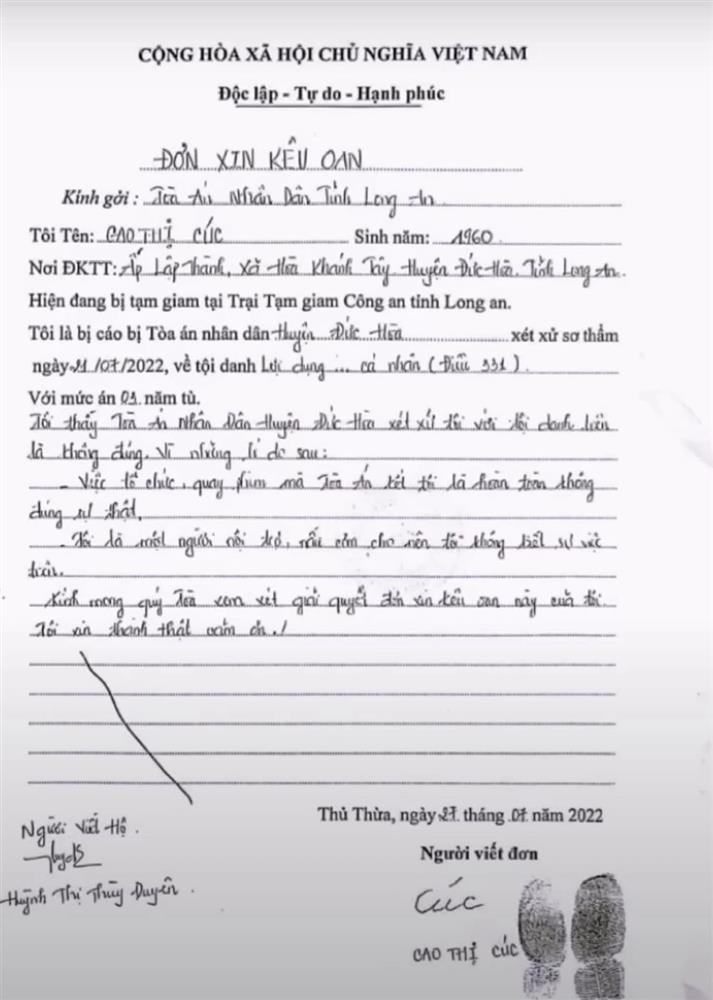 CỘNG HÒA XÃ HỘI CHỦ NGHĨA VIỆT NAM
Độc lập - Tự do - Hạnh phúc
ĐƠN XIN KÊU OAN
Kính gởi : Tòa Án Nhân Dân Tỉnh Long An
Tôi Tên: CAO THỊ CÚC Sinh năm: 1960
Nơi ĐKTT: Ấp Lập Thành, Xã Hòa Khánh Tây Huyện Đức Hòa. Tỉnh Long An.
Hiện đang bị tạm giam tại Trại Tạm giam Công an tỉnh Long an.
Tôi là bị cáo bị Tòa án nhân dân Huyện Đức Hòa xét xử sơ thẩm
ngày 21/07/2022, về tội danh Lợi dụng ... cá nhân (Điều 331).
Với mức án 03 năm tù.
Tôi thấy Tòa Án Nhân Dân Huyện Đức Hòa xét xử tôi với tội danh trên
là không đúng. Vì những lí do sau:
- Việc tổ chức, quay phim mà Tòa Án kết tội là hoàn toàn không
đúng sự thật.
- Tôi là một người nội trợ, nấu cơm cho nên tôi không biết sự việc
trên.
Kính mong quý Tòa xem xét giải quyết đơn xin kêu oan này của tôi.
Tôi xin thành thật cảm ơn./
Thủ Thừa, ngày 27 tháng 07 năm 2022
Người viết đơn
Cúc
CAO THỊ CÚC
Người Viết Hộ.
Huỳnh Thị Thùy Duyên.